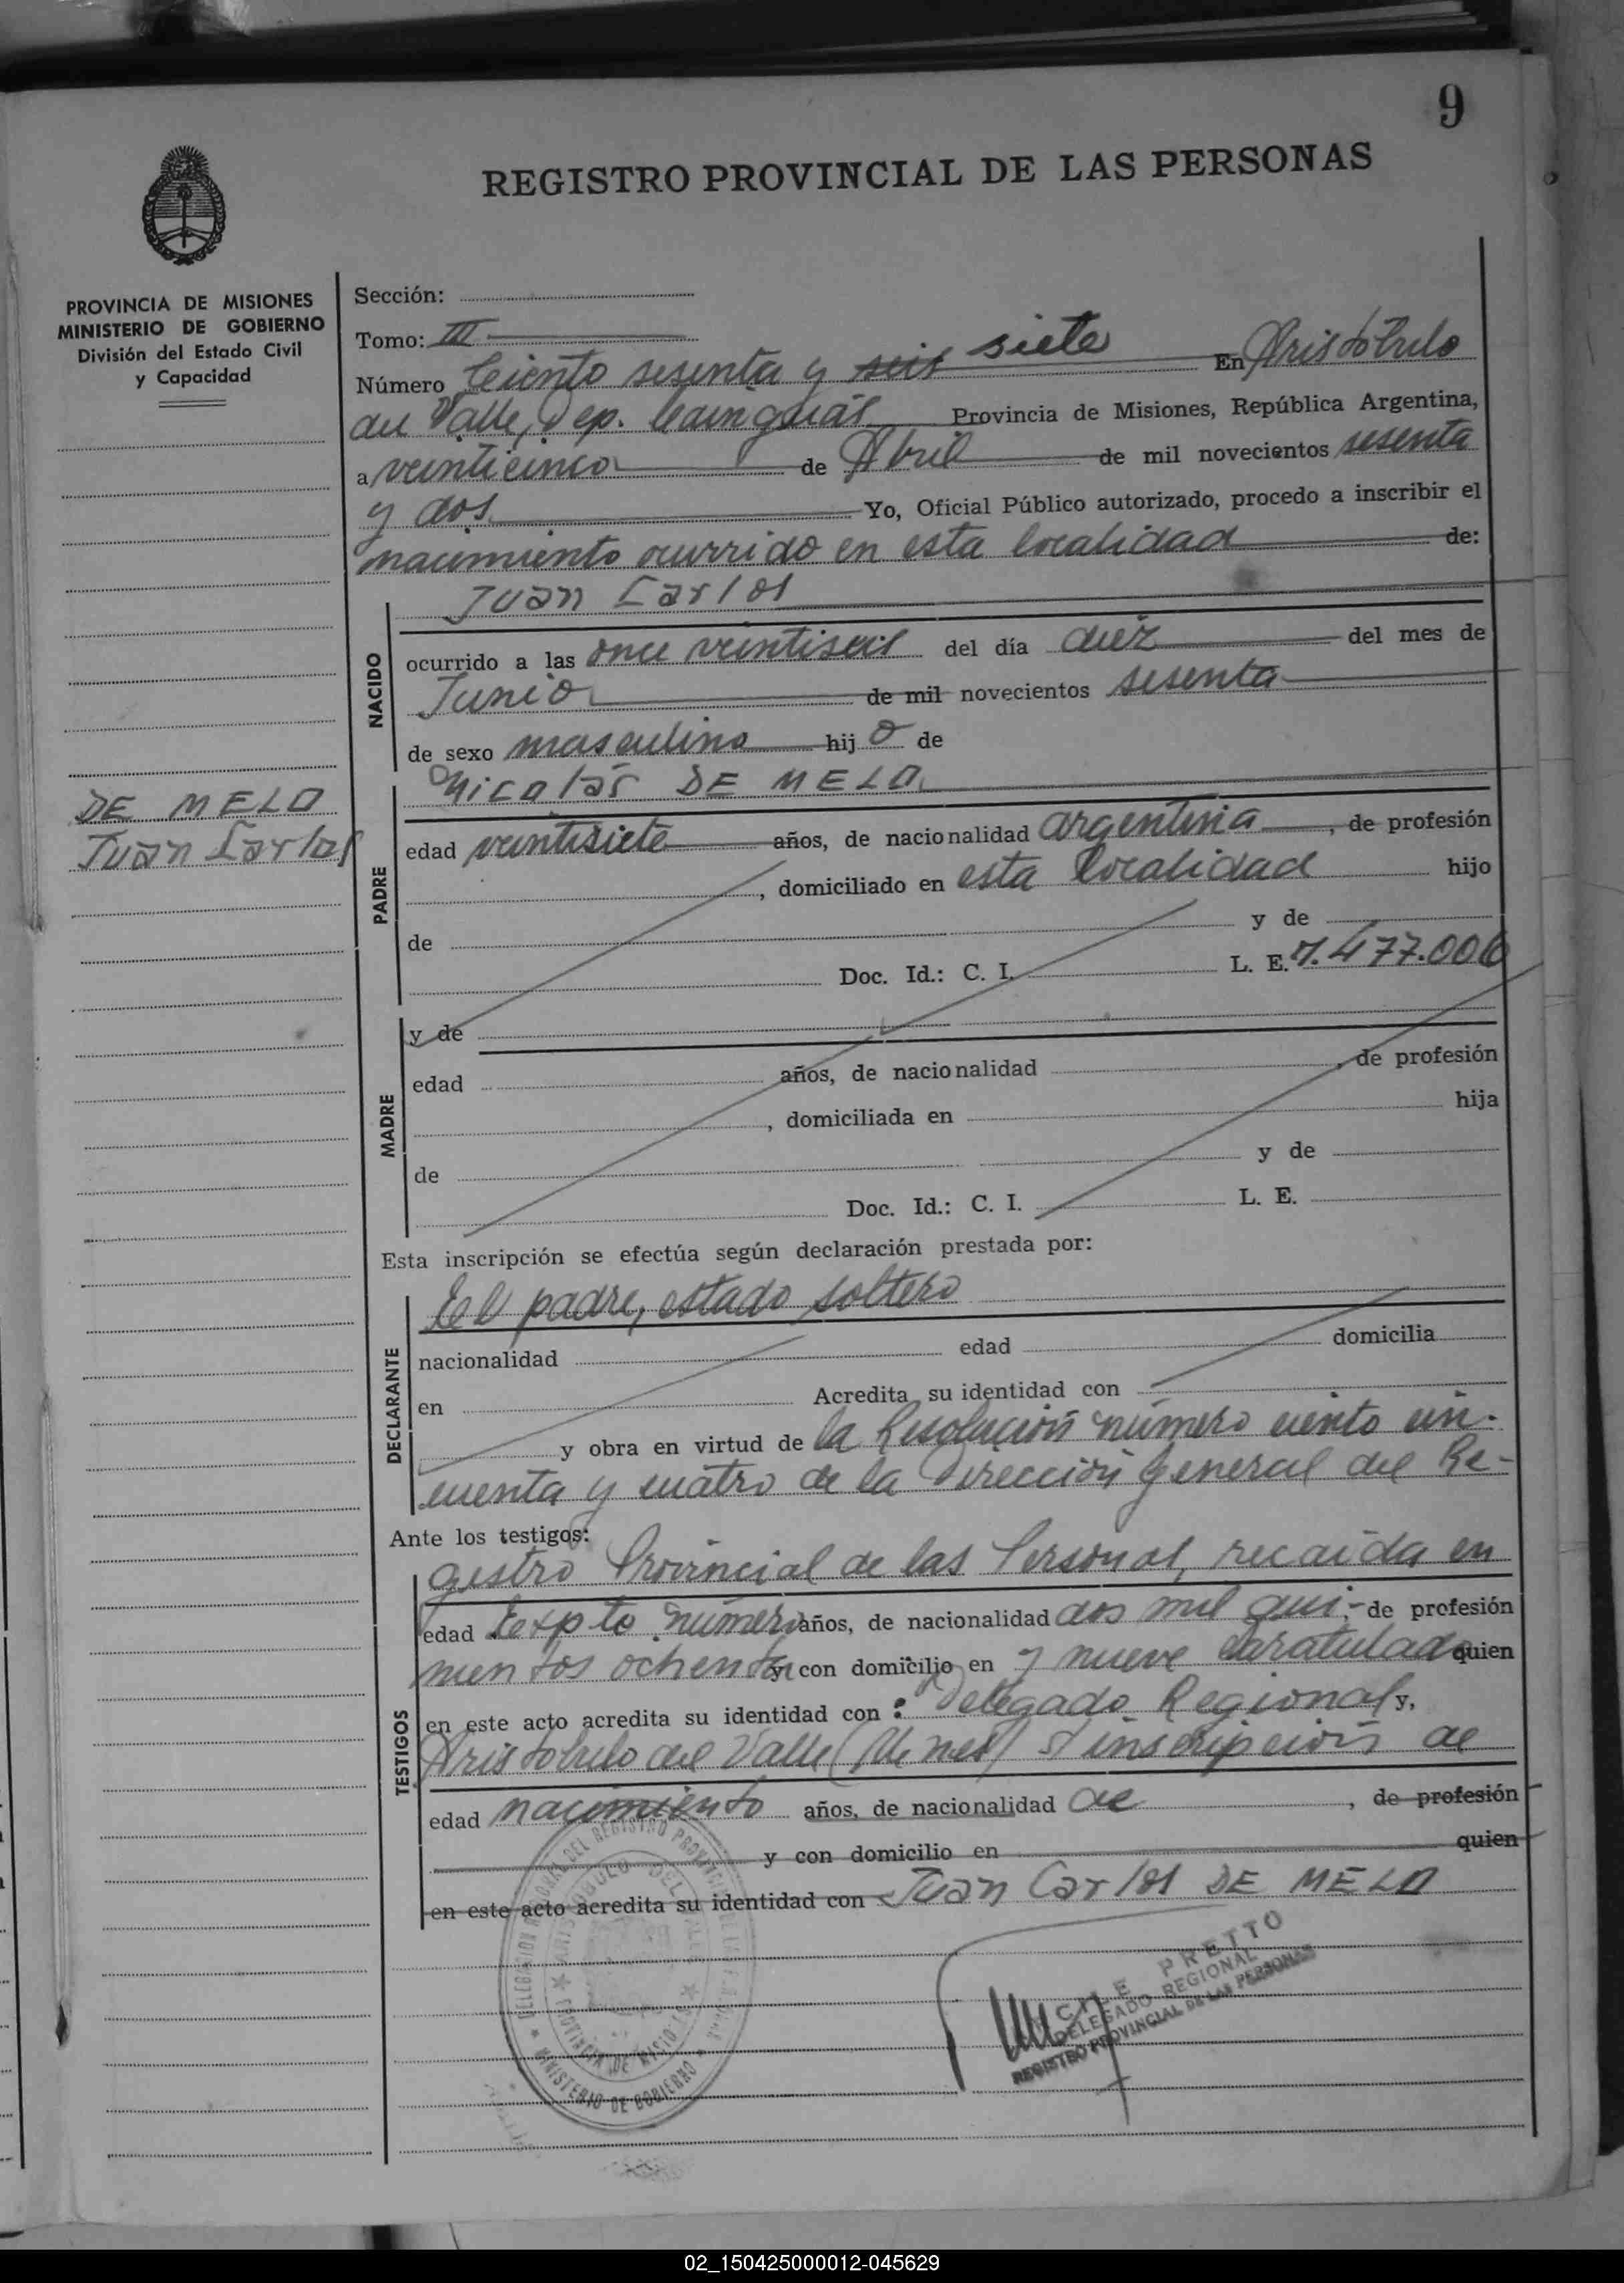 9
REGISTRO PROVINCIAL DE LAS PERSONAS
PROVINCIA DE MISIONES
MINISTERIO DE GOBIERNO
División del Estado Civil
y Capacidad
DE MELO
Juan Carlos
Sección:
Tomo: III
Número Ciento sesenta y seis siete En Aristóbulo
del Valle, Dep. Cainguás Provincia de Misiones, República Argentina,
a veinticinco de Abril de mil novecientos sesenta
y dos Yo, Oficial Público autorizado, procedo a inscribir el
nacimiento ocurrido en esta localidad de:
NACIDO
Juan Carlos
ocurrido a las once veintiseis del día diez del mes de
Junio de mil novecientos sesenta
de sexo masculino hij o de
PADRE
Nicolás DE MELO
edad veintisiete años, de nacionalidad argentina, de profesión
, domiciliado en esta localidad hijo
de y de
Doc. Id.: C. I. L. E. 7.477.006
MADRE
y de
edad años, de nacionalidad , de profesión
, domiciliada en hija
de y de
Doc. Id.: C. I. L. E.
Esta inscripción se efectúa según declaración prestada por:
DECLARANTE
El padre, estado soltero
nacionalidad edad domicilia
en Acredita su identidad con
y obra en virtud de la Resolución número ciento cin-
cuenta y cuatro de la Dirección General del Re-
Ante los testigos:
TESTIGOS
gistro Provincial de las Personas, recaída en
edad Expte número años, de nacionalidad dos mil qui- de profesión
nientos ochenta y con domicilio en y nueve caratulado quien
en este acto acredita su identidad con : Delegado Regional y,
Aristóbulo del Valle (Mnes) s/ inscripción de
edad nacimiento años, de nacionalidad de , de profesión
y con domicilio en quien
en este acto acredita su identidad con Juan Carlos DE MELO
PRETTO
DELEGADO REGIONAL
REGISTRO PROVINCIAL DE LAS PERSONAS
MINISTERIO DE GOBIERNO
PROVINCIA DE MISIONES
02_150425000012-045629